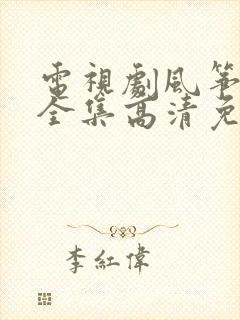 電視劇風箏
全集高清免
李紅偉